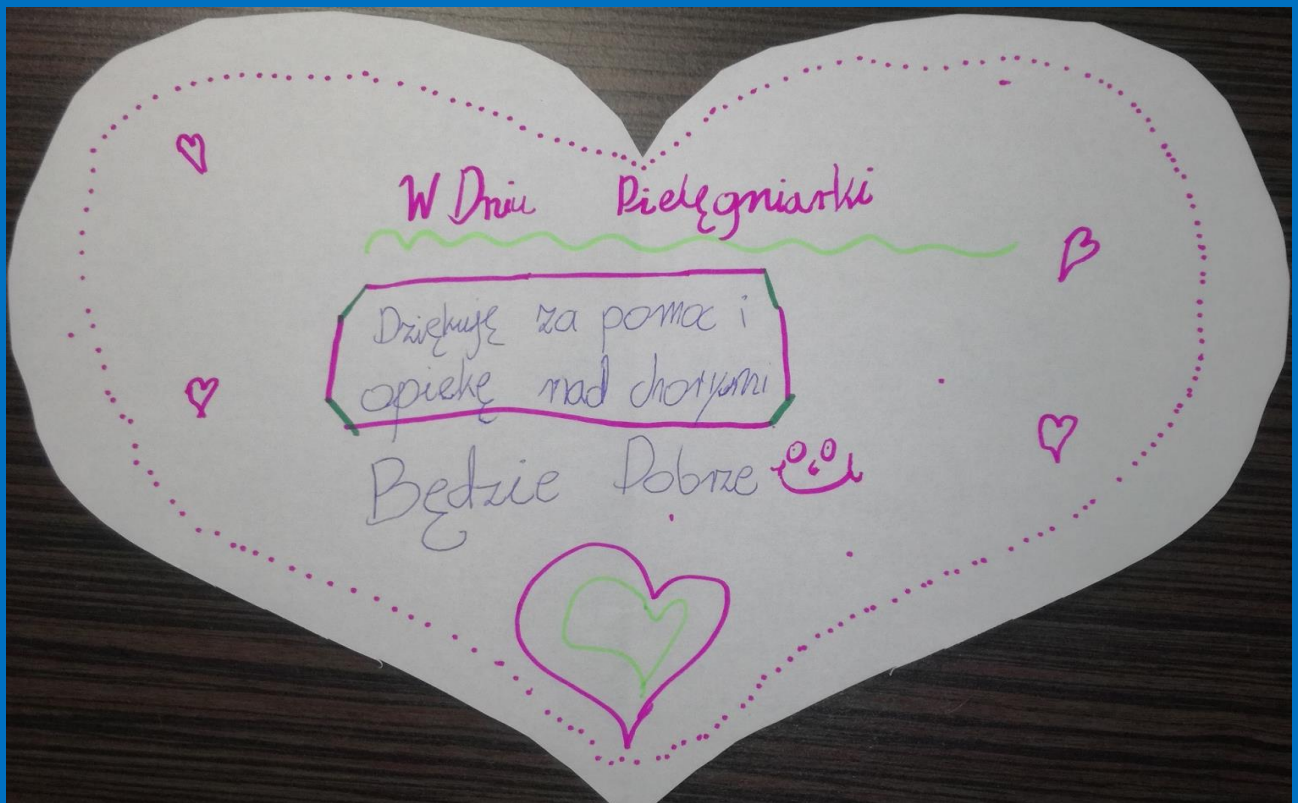 W Dniu Pielęgniarki
Dziękuję za pomoc i
opiekę nad chorymi
Będzie Dobrze